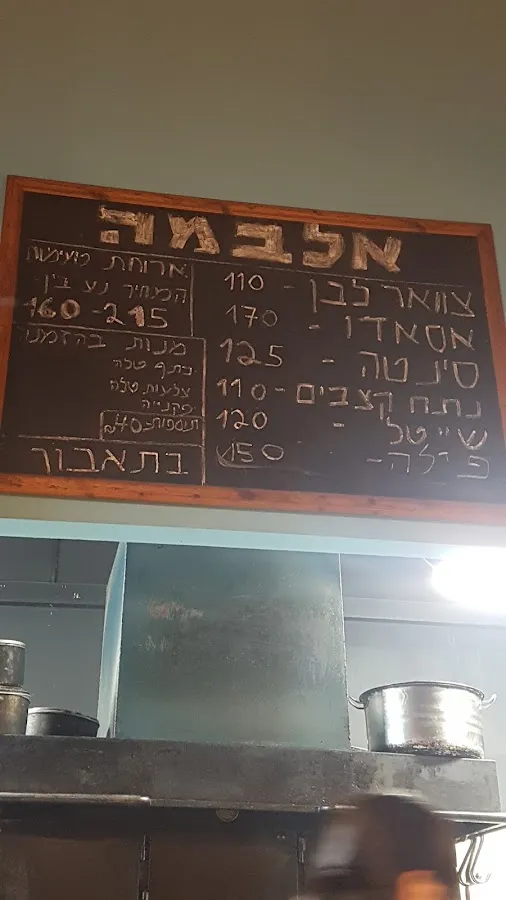 אלבמה
צוואר לבן - 110
אסאדו - 170
סינטה - 125
נתח קצבים - 110
שייטל - 120
פילה - 150
ארוחת טעימות
המחיר נע בין
160-215
מנות בהזמנה
כתף טלה
צלעות טלה
פקנייה
תוספות-40₪
בתאבון